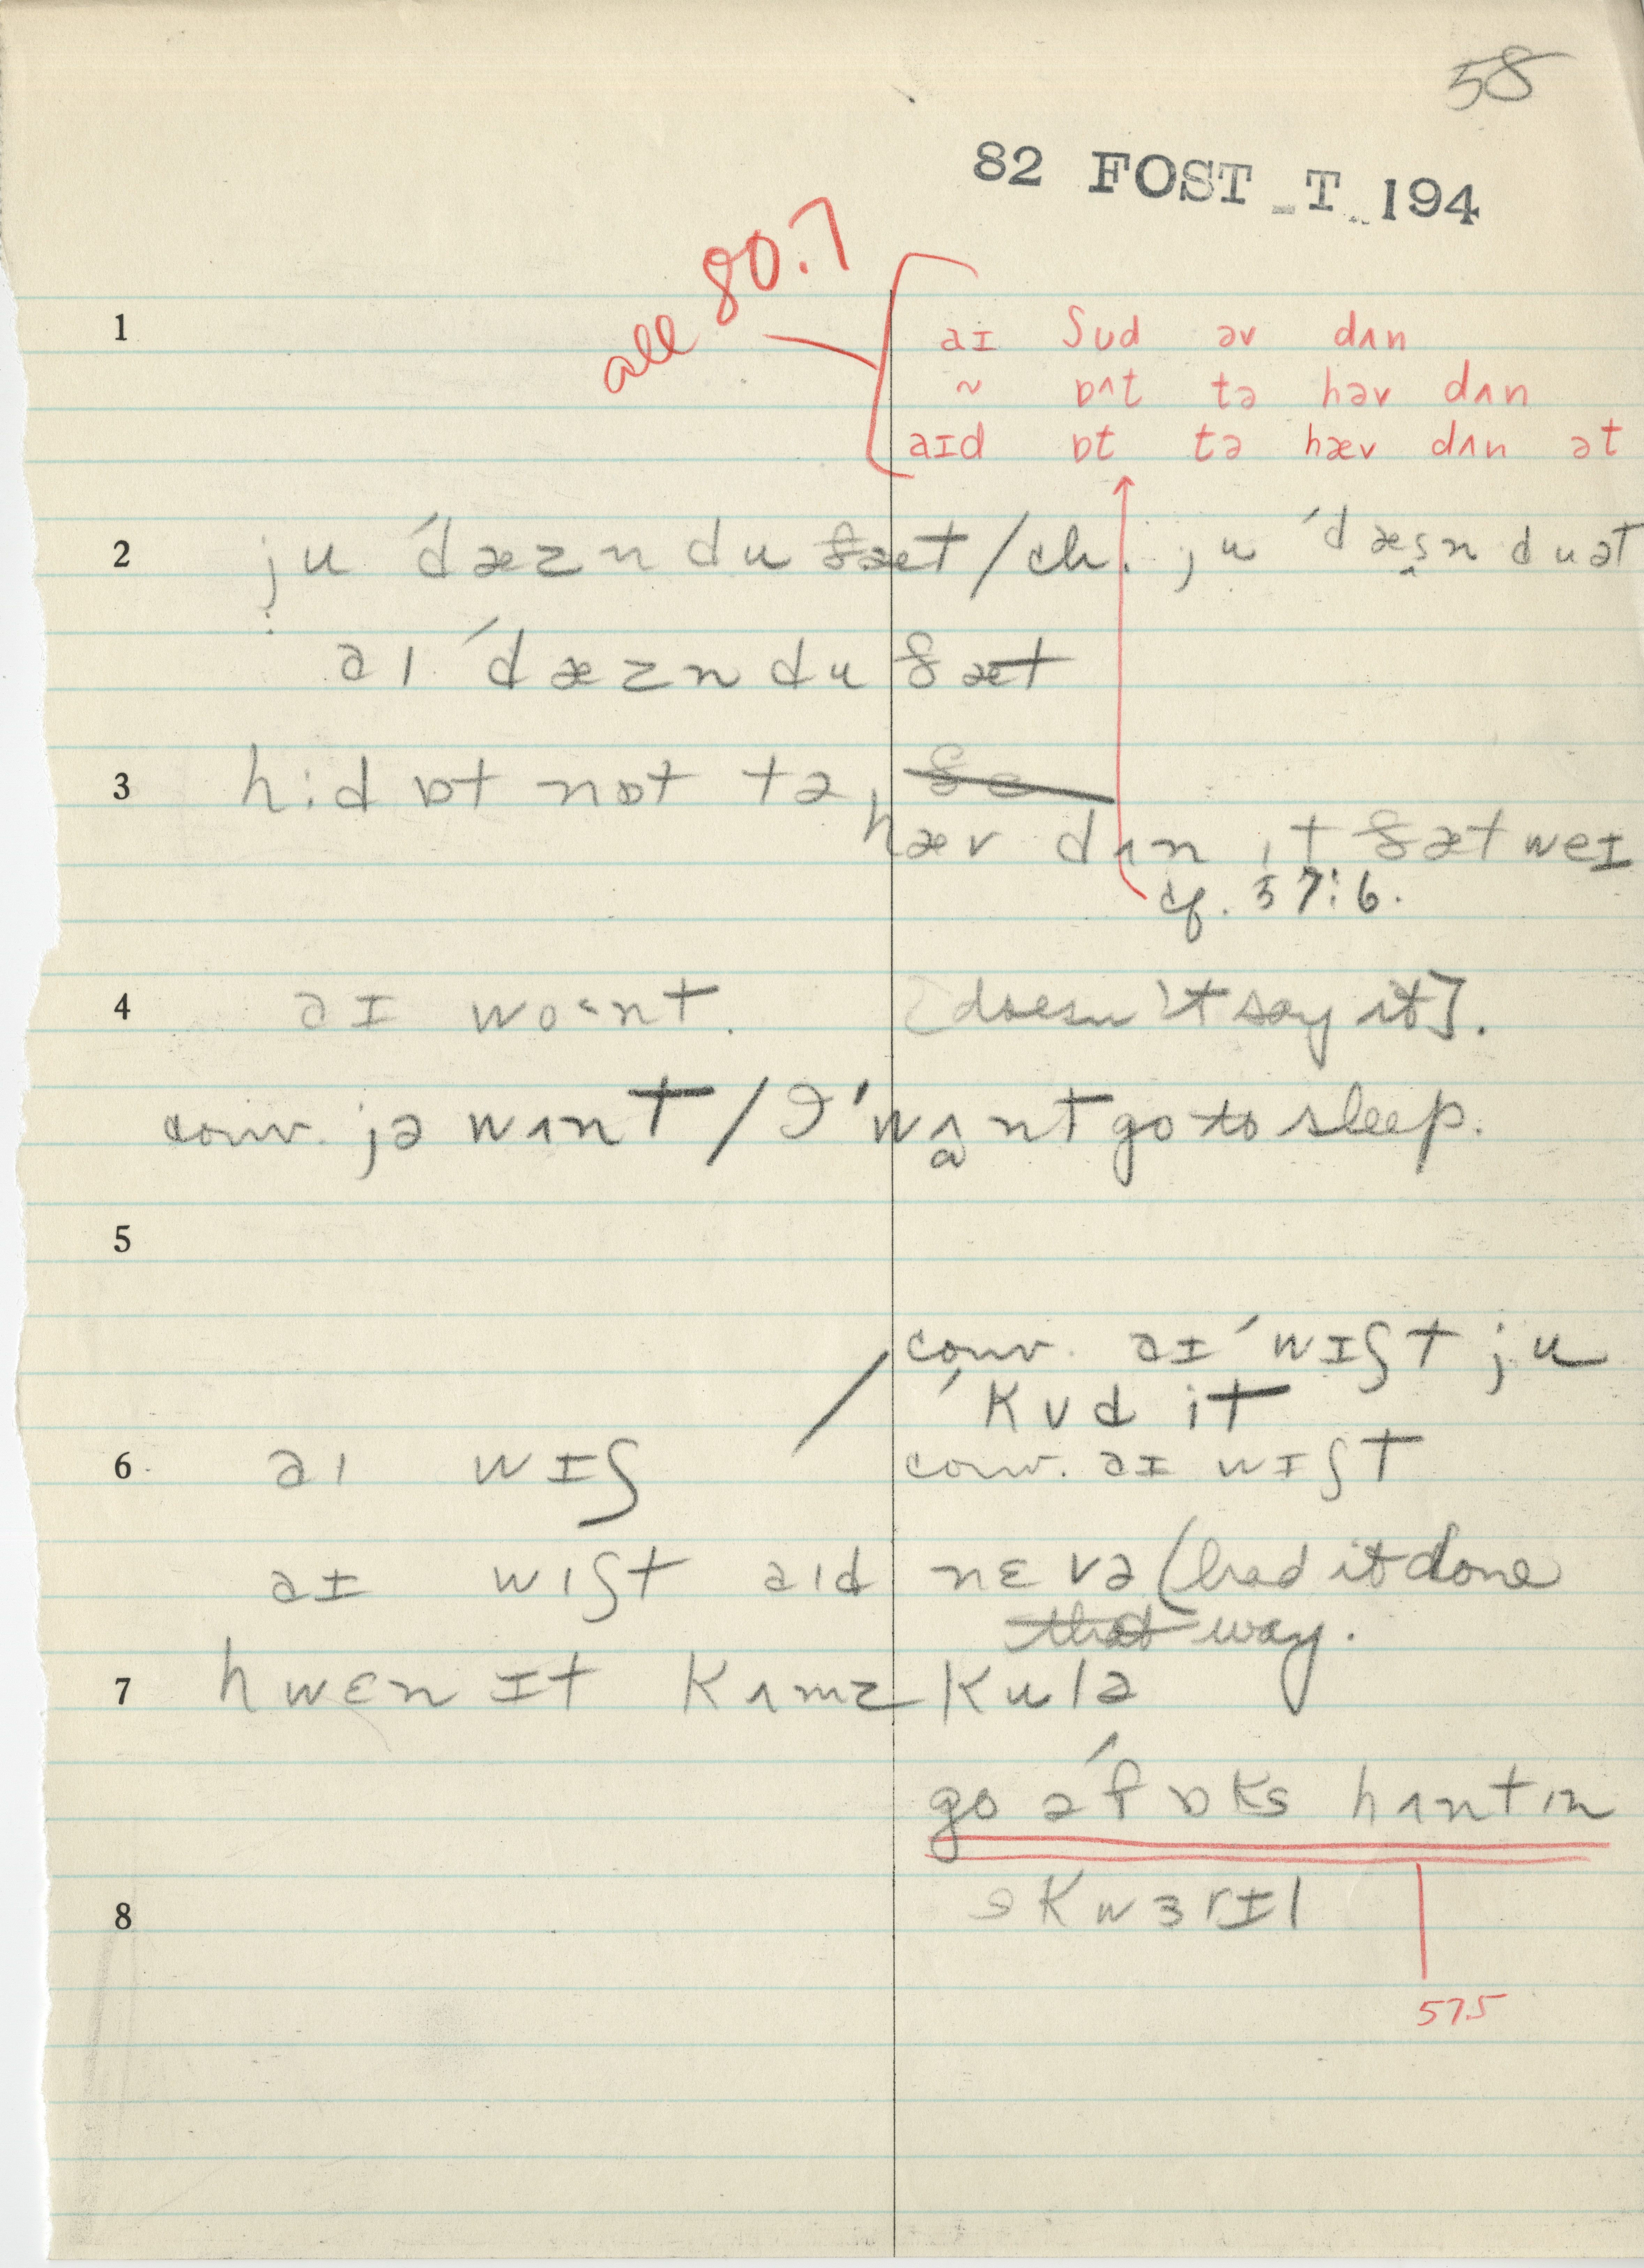 58
82 FOST T 194
all 80.7
1 aɪ ʃʊd əv dʌn
~ ɒʌt tə həv dʌn
aɪd ɒt tə hæv dʌn ət
2 ju ˈdæzn du ðæt / ch. ju ˈdæs̬n du ət
aɪ ˈdæzn du ðæt
3 hid ɒt nɒt tə
hæv dʌn ɪt ðæt weɪ
cf. 57:6.
4 aɪ wo˂nt. [doesn't say it].
conv. jə wʌnt / I 'wʌnt go to sleep.
5
conv. aɪ ˈwɪʃt ju
ˈkʊd it
6 aɪ wɪʃ / conv. aɪ wɪʃt
aɪ wɪʃt aɪd nɛvə (had it done
that way.
7 hwɛn ɪt kʌmz kulə
go əˈfɒks hʌntɪn
8 skwɜrɪl
57.5